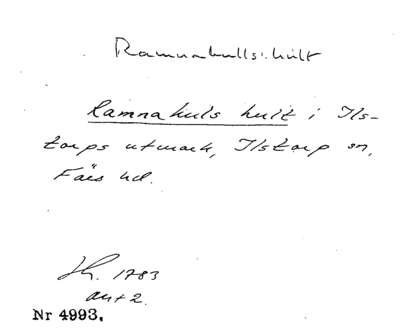 Ramnahulls hult
Ramnahuls hult i Ils-
torps utmark, Ilstorp sn,
Färs hd.
Sk. 1783
akt 2.
Nr 4993.